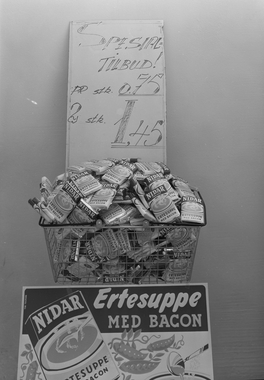 SPESIAL
TILBUD!
pp stk. 0.75
2 stk. 1.45
NIDAR
Ertesuppe
MED BACON
NIDAR
ERTESUPPE
BACON